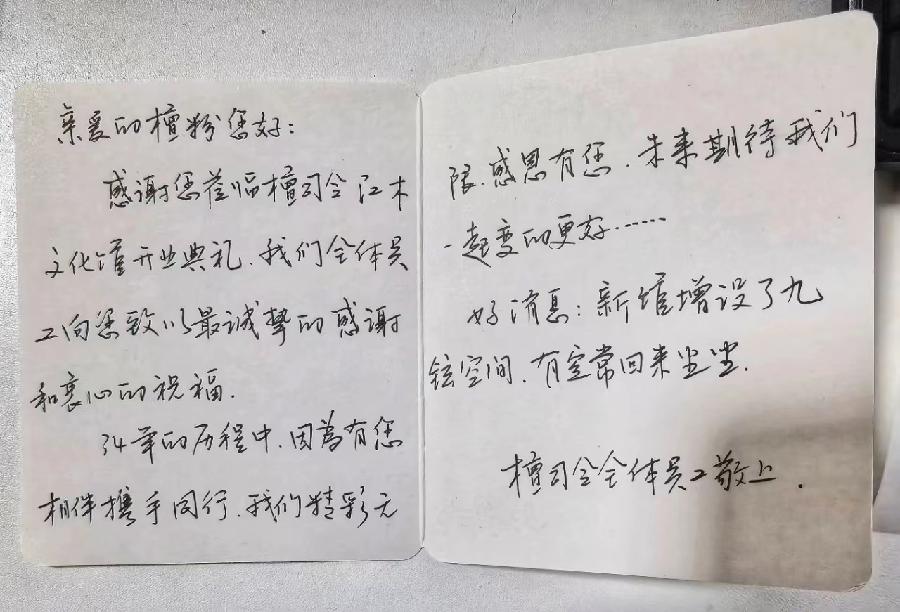 亲爱的檀粉您好:
感谢您莅临檀司令江木
文化馆开业典礼.我们全体员
工向您致以最诚挚的感谢
和衷心的祝福.
34年的历程中.因為有您
相伴携手同行.我们精彩无
限.感恩有您.未来期待我们
一起变的更好……
好消息:新馆增设了九
铉空间.有空常回来坐坐.
檀司令全体员工敬上.